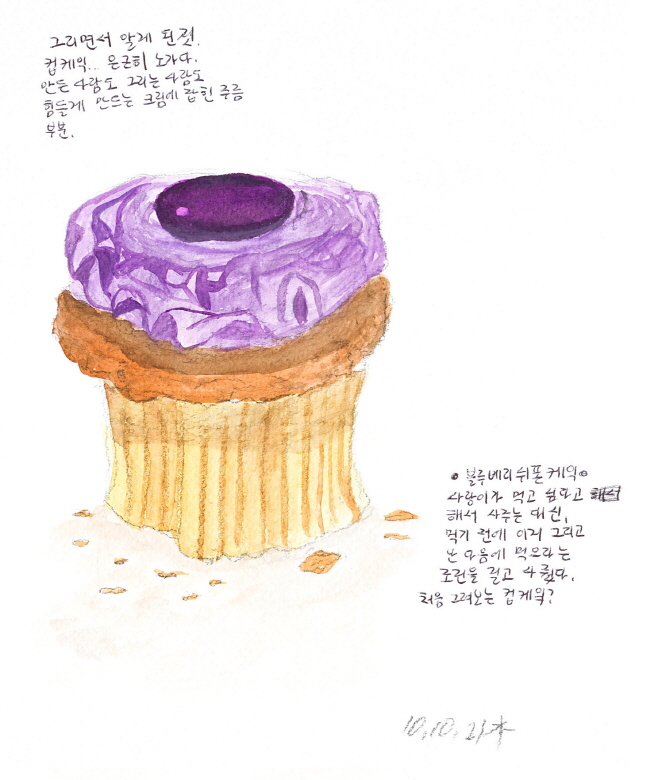 그리면서 알게 된 것.
컵케익... 은근히 노가다.
만든 사람도 그리는 사람도
힘들게 만드는 크림에 잡힌 주름
부분.
블루베리쉬폰케익
사랑이가 먹고 싶다고
해서 사주는 대신,
먹기 전에 이거 그리고
난 다음에 먹으라는
조건을 걸고 사줬다.
처음 그려보는 컵케익?
10.10.21木